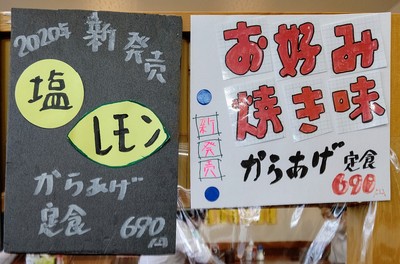 2020年 新発売
塩
レモン
からあげ
定食 690
お好み
焼き味
新発売
からあげ 定食
690